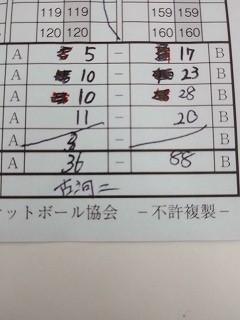 119 119 159 159
120 120 160 160
A 5 - 17 B
A 10 - 23 B
A 10 - 28 B
A 11 - 20 B
A - B
A 36 - 88 B
古河二
ットボール協会 －不許複製－